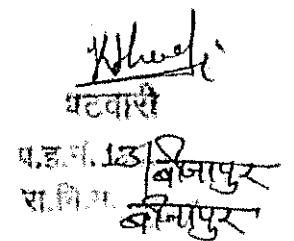 पटवारी
प.ह.नं. 13 बीजापुर
रा.नि.मं. बीजापुर